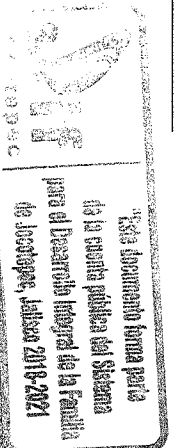 "Este documento forma parte
de la cuenta pública del Sistema
para el Desarrollo Integral de la Familia
de Jocotepec, Jalisco 2018-2021
DIF